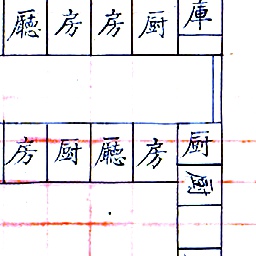 廳房房厨庫
房厨廳房厨
厨